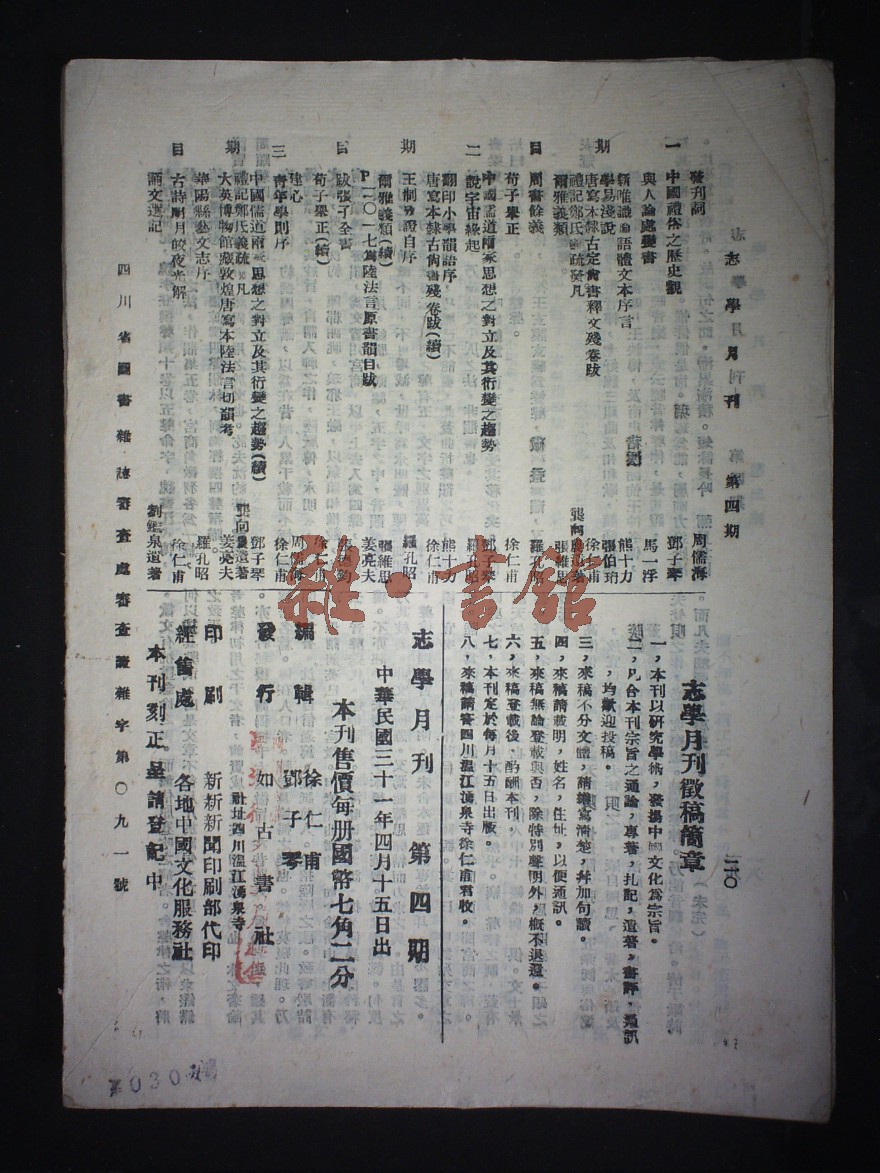 志學月刊 第四期
志學月刊徵稿簡章
二〇
一，本刊以研究學術，發揚中國文化為宗旨。
二，凡合本刊宗旨之通論，專著，札記，遺著，書評，通訊
，均歡迎投稿。
三，來稿不分文體，請繕寫清楚，幷加句讀。
四，來稿請載明，姓名，住址，以便通訊。
五，來稿無論登載與否，除特別聲明外，概不退還。
六，來稿登載後，酌酬本刊。
七，本刊定於每月十五日出版。
八，來稿請寄四川溫江湧泉寺徐仁甫君收。
一期目
發刊詞 周儒海
中國禮俗之歷史觀 鄧子琴
與人論處變書 馬一浮
新唯識論語體文本序言 熊十力
學易淺說 張伯珩
唐寫本隸古定尙書釋文殘卷跋 徐仁甫
禮記鄭氏義疏發凡 龔向農遺著
爾雅義類 張維思
周書餘義 羅孔昭
荀子舉正 徐仁甫
二期目
中國儒道兩家思想之對立及其衍變之趨勢 鄧子琴
說宇宙緣起 熊十力
翻印小學韻語序 徐仁甫
唐寫本隸古尙書殘卷跋(續)
王制攷證自序 羅孔昭
爾雅義類(續) 張維思
P二〇一七為陸法言原書韻目跋 姜亮夫
跋張子全書
荀子舉正(續) 徐仁甫
三期目
建心 周儒海
靑年學則序 徐仁甫
中國儒道兩家思想之對立及其衍變之趨勢(續) 鄧子琴
禮記鄭氏義疏發凡 龔向農遺著
大英博物館藏敦煌唐寫本陸法言切韻考 姜亮夫
華陽縣藝文志序 羅孔昭
古詩明月皎夜光解 徐仁甫
誦文選記 劉鑑泉遺著
志學月刊 第四期
中華民國三十一年四月十五日出
本刊售價每册國幣七角二分
編輯 徐仁甫 鄧子琴
發行 如古書社
社址四川溫江湧泉寺
印刷 新新新聞印刷部代印
經售處 各地中國文化服務社
本刊刻正呈請登記中
四川省圖書雜誌審查處審查證雜字第〇九一號
雜·書館